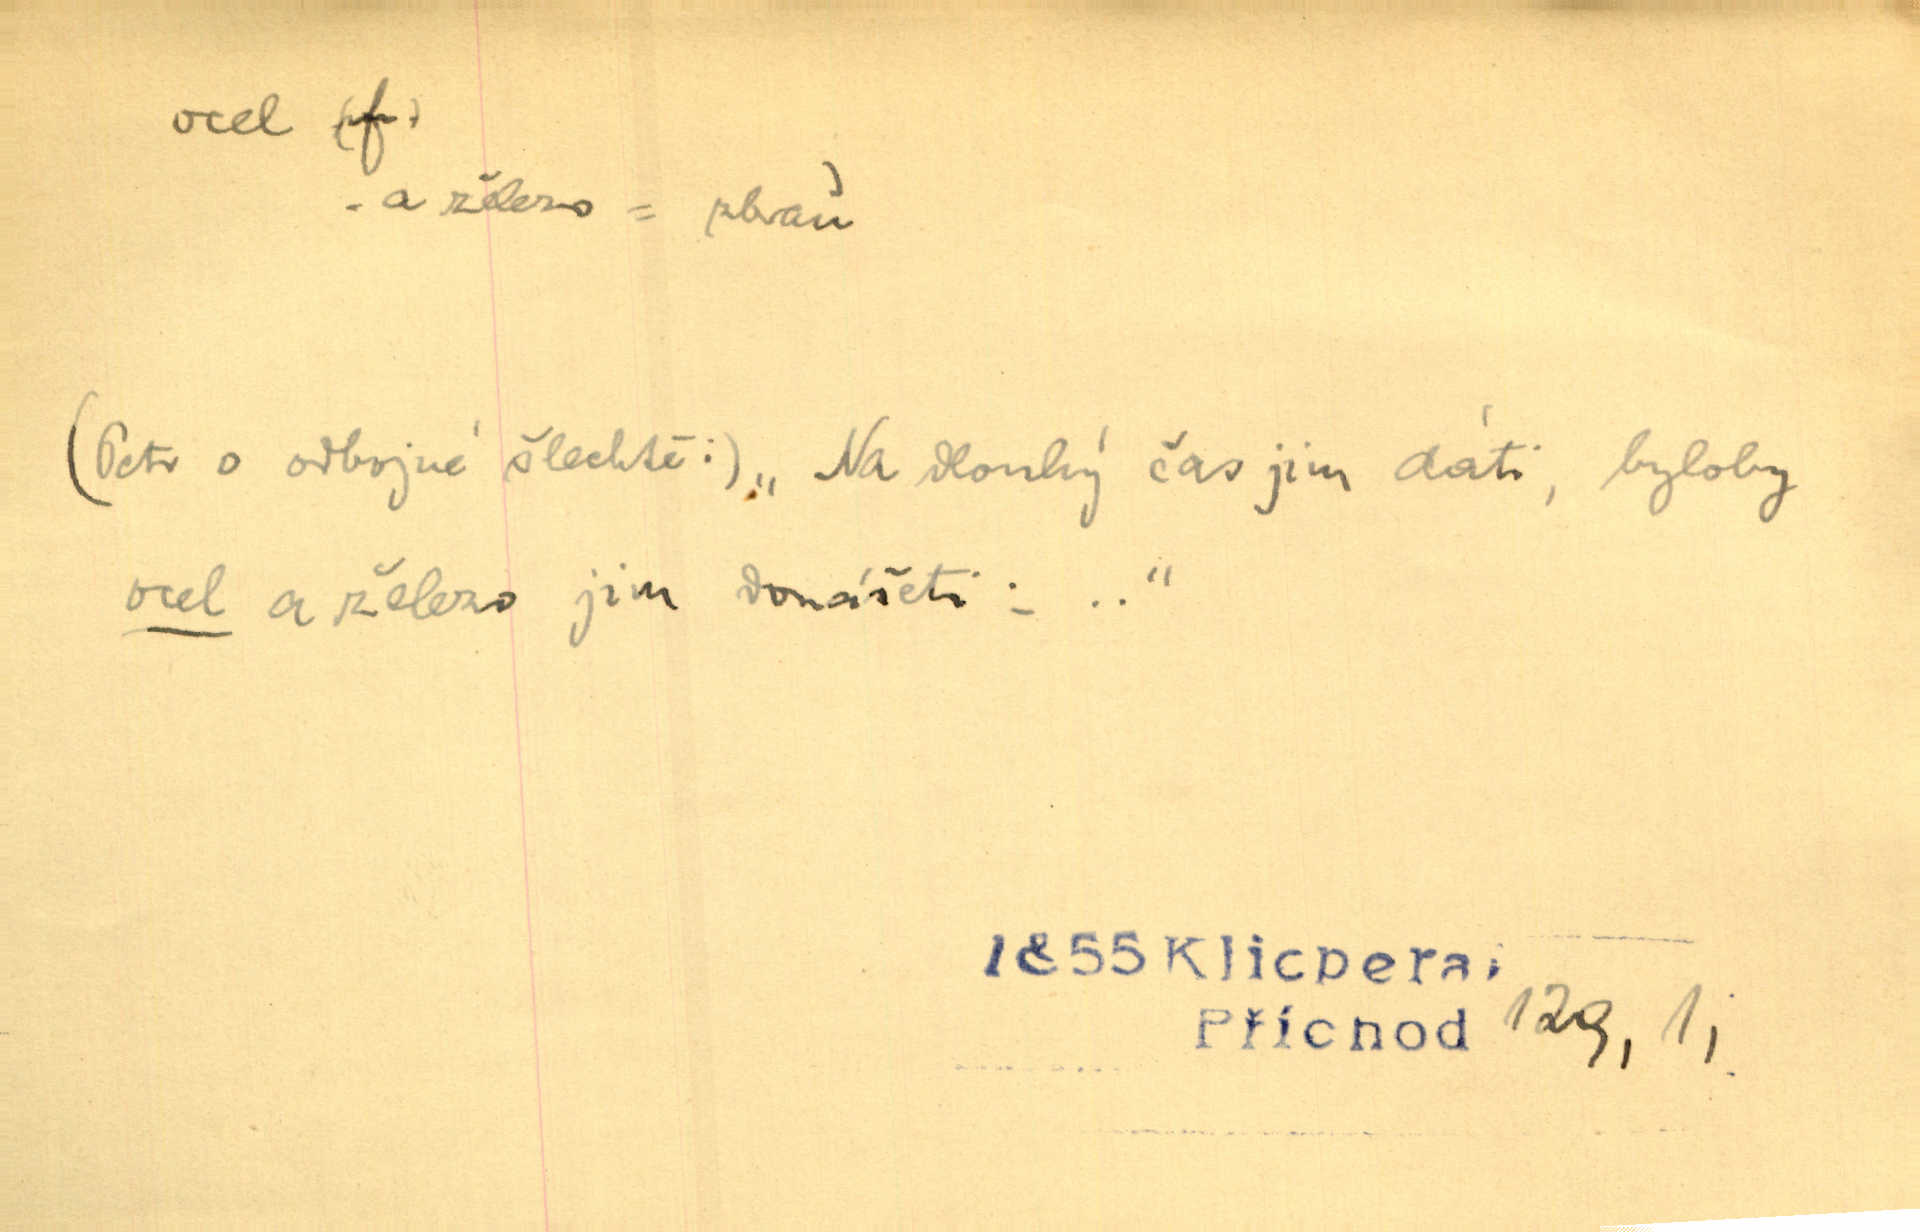 ocel (f.)
- a železo = zbraň
(Petr o odbojné šlechtě:) „Na dlouhý čas jim dáti, byloby
ocel a železo jim donášeti - .."
1855 Klicpera,
Příchod 129, 1;